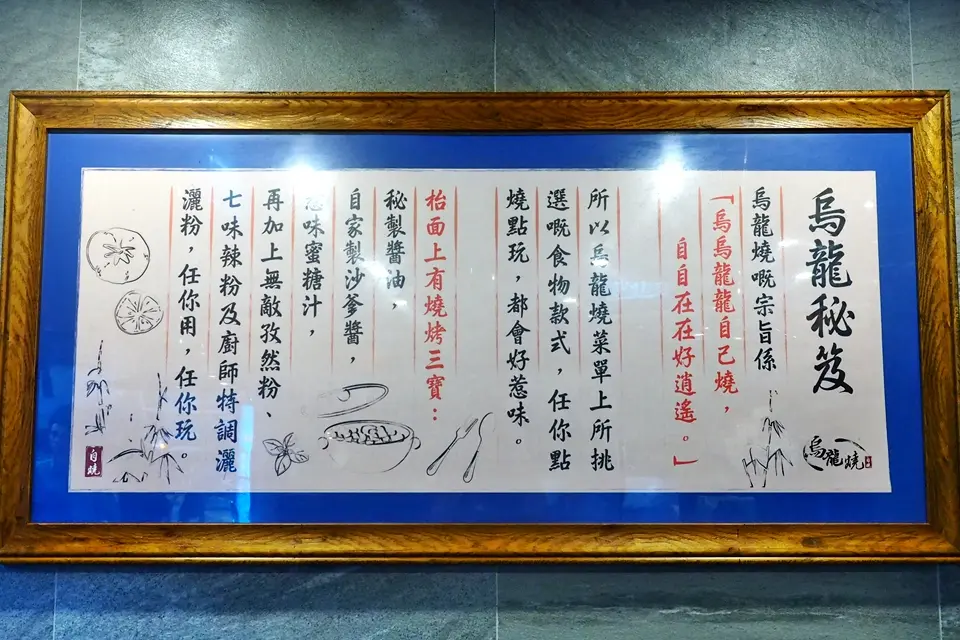 烏龍秘笈
烏龍燒嘅宗旨係
「烏烏龍龍自己燒，
自自在在好逍遙。」
所以烏龍燒菜單上所挑
選嘅食物款式，任你點
燒點玩，都會好惹味。
枱面上有燒烤三寶：
秘製醬油，
自家製沙爹醬，
惹味蜜糖汁，
再加上無敵孜然粉、
七味辣粉及廚師特調灑
灑粉，任你用，任你玩。
烏龍燒
自燒